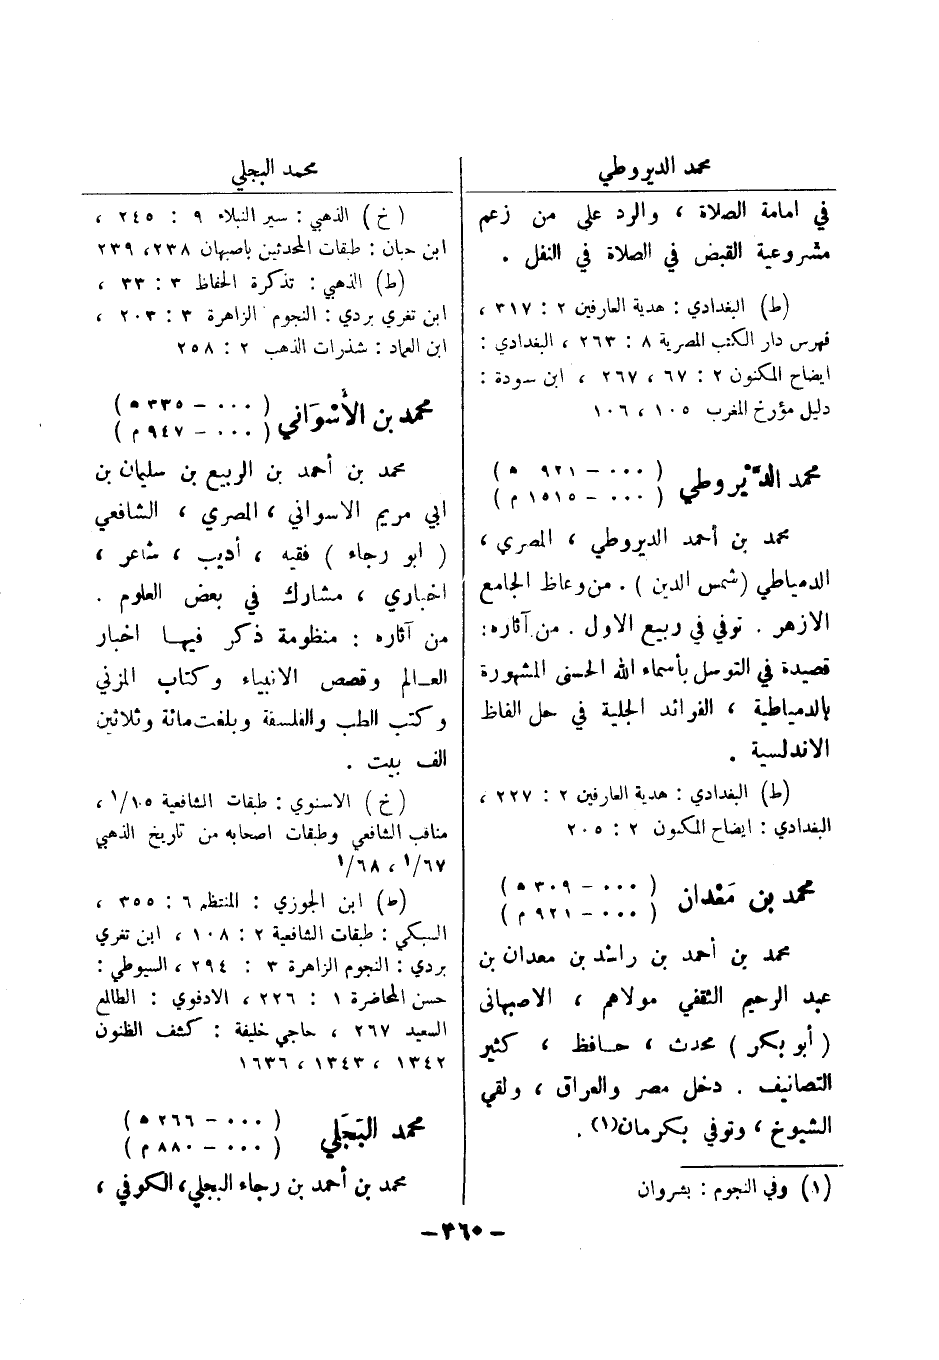 محمد الديروطي
في امامة الصلاة ، والرد على من زعم
مشروعية القبض في الصلاة في النفل .
(ط) البغدادي : هدية العارفين ٢ : ٣١٧ ،
فهرس دار الكتب المصرية ٨ : ٢٦٣ ، البغدادي :
ايضاح المكنون ٢ : ٦٧ ، ٢٦٧ ، ابن سودة :
دليل مؤرخ المغرب ١٠٥ ، ١٠٦
محمد الدَّيْروطي ( ٠٠٠ – ٩٢١ ه )
( ٠٠٠ – ١٥١٥ م )
محمد بن أحمد الديروطي ، المصري ،
الدمياطي (شمس الدين ) . من وعاظ الجامع
الازهر . توفي في ربيع الاول . من آثاره :
قصيدة في التوسل بأسماء الله الحسنى المشهورة
بالدمياطية ، الفرائد الجلية في حل الفاظ
الاندلسية .
(ط) البغدادي : هدية العارفين ٢ : ٢٢٧ ،
البغدادي : ايضاح المكنون ٢ : ٢٠٥
محمد بن مَعْدان ( ٠٠٠ – ٣٠٩ ه )
( ٠٠٠ – ٩٢١ م )
محمد بن أحمد بن راشد بن معدان بن
عبد الرحيم الثقفي مولاهم ، الاصبهاني
( أبو بكر ) محدث ، حافظ ، كثير
التصانيف . دخل مصر والعراق ، ولقي
الشيوخ ، وتوفي بكرمان(١) .
(١) وفي النجوم : بشروان
محمد البجلي
(خ) الذهبي : سير النبلاء ٩ : ٢٤٥ ،
ابن حبان : طبقات المحدثين باصبهان ٢٣٨، ٢٣٩
(ط) الذهبي : تذكرة الحفاظ ٣ : ٣٣ ،
ابن تغري بردي : النجوم الزاهرة ٣ : ٢٠٣ ،
ابن العماد : شذرات الذهب ٢ : ٢٥٨
محمد بن الأَسْوَاني ( ٠٠٠ – ٣٣٥ ه )
( ٠٠٠ – ٩٤٧ م )
محمد بن أحمد بن الربيع بن سليمان بن
ابي مريم الاسواني ، المصري ، الشافعي
( ابو رجاء ) فقيه ، أديب ، شاعر ،
اخباري ، مشارك في بعض العلوم .
من آثاره : منظومة ذكر فيها اخبار
العالم وقصص الانبياء وكتاب المزني
وكتب الطب والفلسفة وبلغت مائة وثلاثين
الف بيت .
(خ) الاسنوي : طبقات الشافعية ١٠٥/١ ،
مناقب الشافعي وطبقات اصحابه من تاريخ الذهبي
١/٦٧ ، ١/٦٨
(ط) ابن الجوزي : المنتظم ٦ : ٣٥٥ ،
السبكي : طبقات الشافعية ٢ : ١٠٨ ، ابن تغري
بردي : النجوم الزاهرة ٣ : ٢٩٤ ، السيوطي :
حسن المحاضرة ١ : ٢٢٦ ، الادفوي : الطالع
السعيد ٢٦٧ ، حاجي خليفة : كشف الظنون
١٣٤٢ ، ١٣٤٣ ، ١٦٣٦
محمد البَجَلي ( ٠٠٠ – ٢٦٦ ه )
( ٠٠٠ – ٨٨٠ م )
محمد بن أحمد بن رجاء البجلي ، الكوفي ،
– ٢٦٠ –